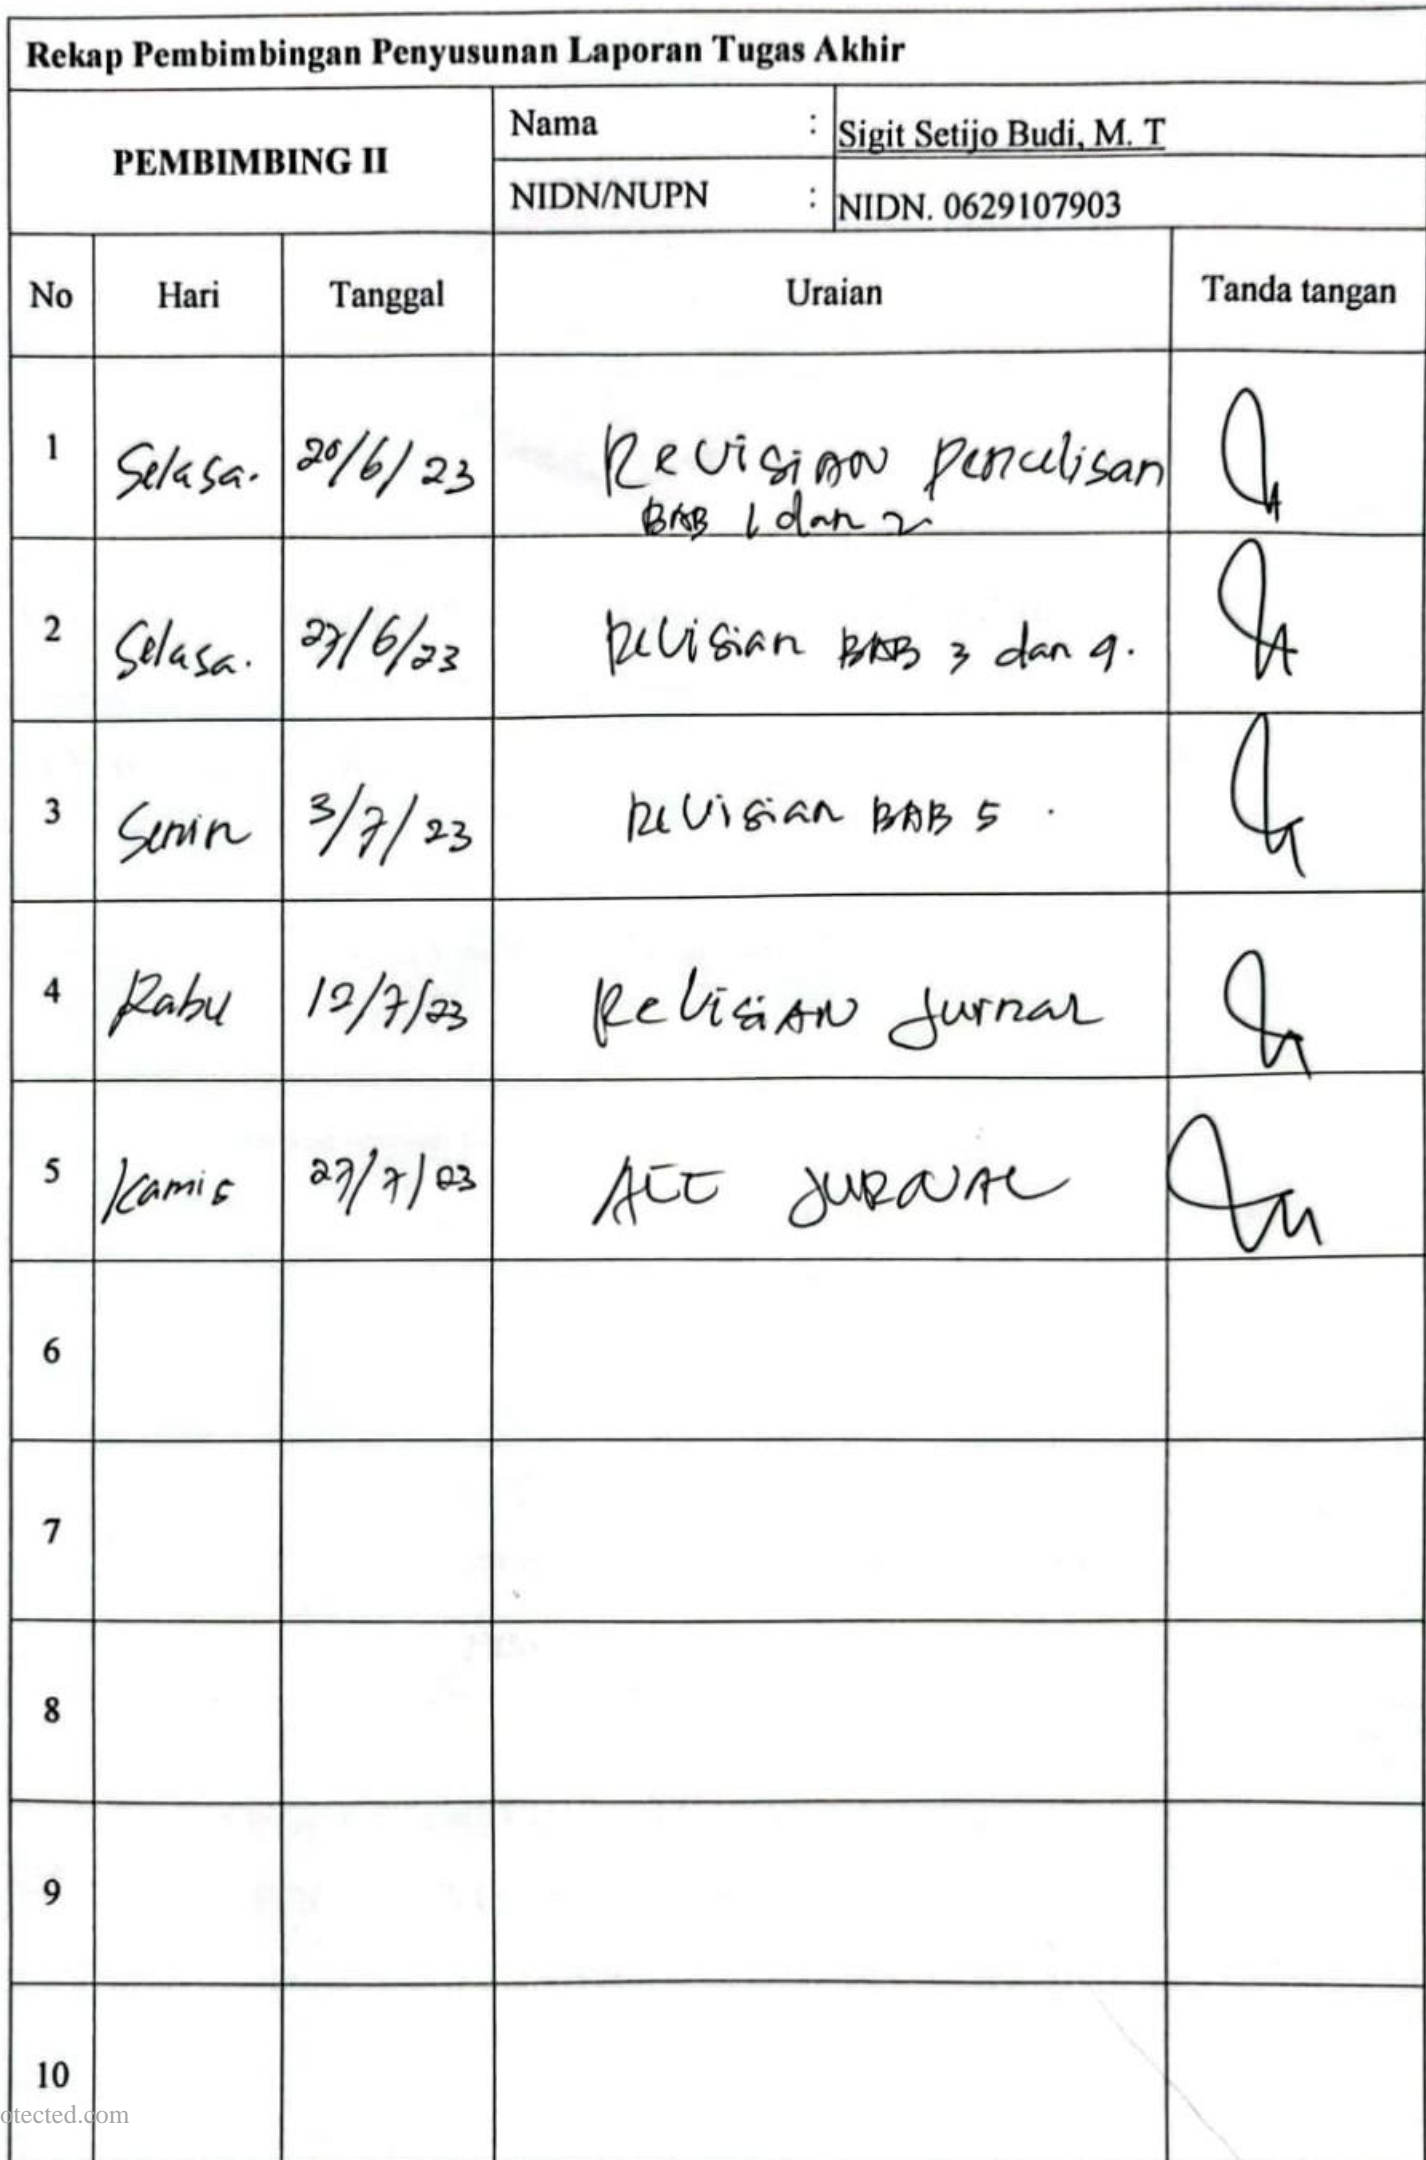 Rekap Pembimbingan Penyusunan Laporan Tugas Akhir
PEMBIMBING II
Nama : Sigit Setijo Budi, M. T
NIDN/NUPN : NIDN. 0629107903
No Hari Tanggal Uraian Tanda tangan
1 Selasa. 20/6/23 Revisian penulisan
BAB 1 dan 2
2 Selasa. 27/6/23 Revisian BAB 3 dan 4.
3 Senin 3/7/23 Revisian BAB 5
4 Rabu 12/7/23 Revisian Jurnal
5 Kamis 27/7/23 ACC JURNAL
6
7
8
9
10
otected.com